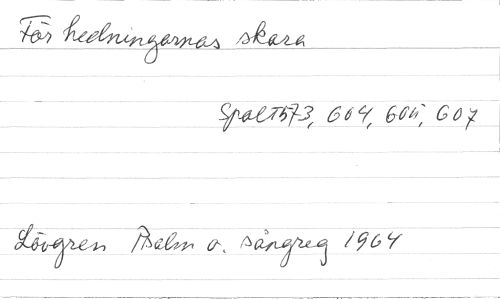 För hedningarnas skara
Spalt 573, 604, 605, 607
Lövgren Psalm o. sångreg 1964